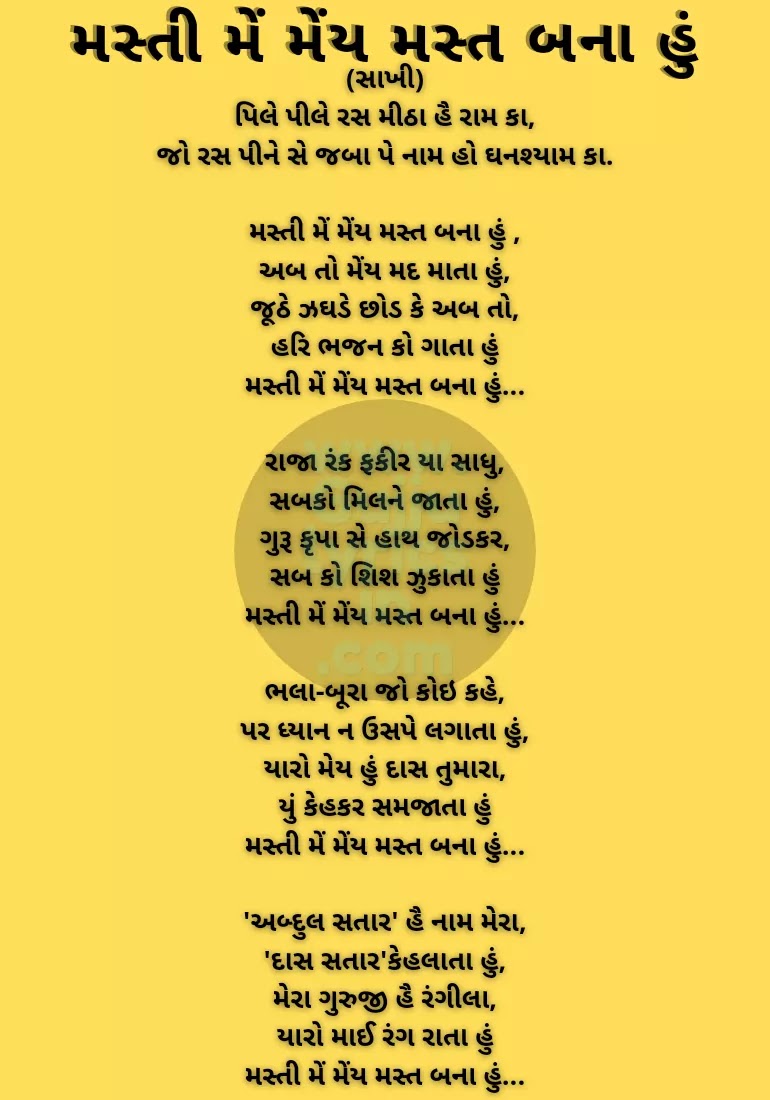 મસ્તી મેં મેંય મસ્ત બના હું
(સાખી)
પિલે પીલે રસ મીઠા હૈ રામ કા,
જો રસ પીને સે જબા પે નામ હો ઘનશ્યામ કા.
મસ્તી મેં મેંય મસ્ત બના હું ,
અબ તો મેંય મદ માતા હું,
જૂઠે ઝઘડે છોડ કે અબ તો,
હરિ ભજન કો ગાતા હું
મસ્તી મેં મેંય મસ્ત બના હું...
રાજા રંક ફકીર યા સાધુ,
સબકો મિલને જાતા હું,
ગુરૂ કૃપા સે હાથ જોડકર,
સબ કો શિશ ઝુકાતા હું
મસ્તી મેં મેંય મસ્ત બના હું...
.com
ભલા-બૂરા જો કોઇ કહે,
પર ધ્યાન ન ઉસપે લગાતા હું,
યારો મેય હું દાસ તુમારા,
યું કેહકર સમજાતા હું
મસ્તી મેં મેંય મસ્ત બના હું...
'અબ્દુલ સતાર' હૈ નામ મેરા,
'દાસ સતાર'કેહલાતા હું,
મેરા ગુરુજી હૈ રંગીલા,
યારો માઈ રંગ રાતા હું
મસ્તી મેં મેંય મસ્ત બના હું...